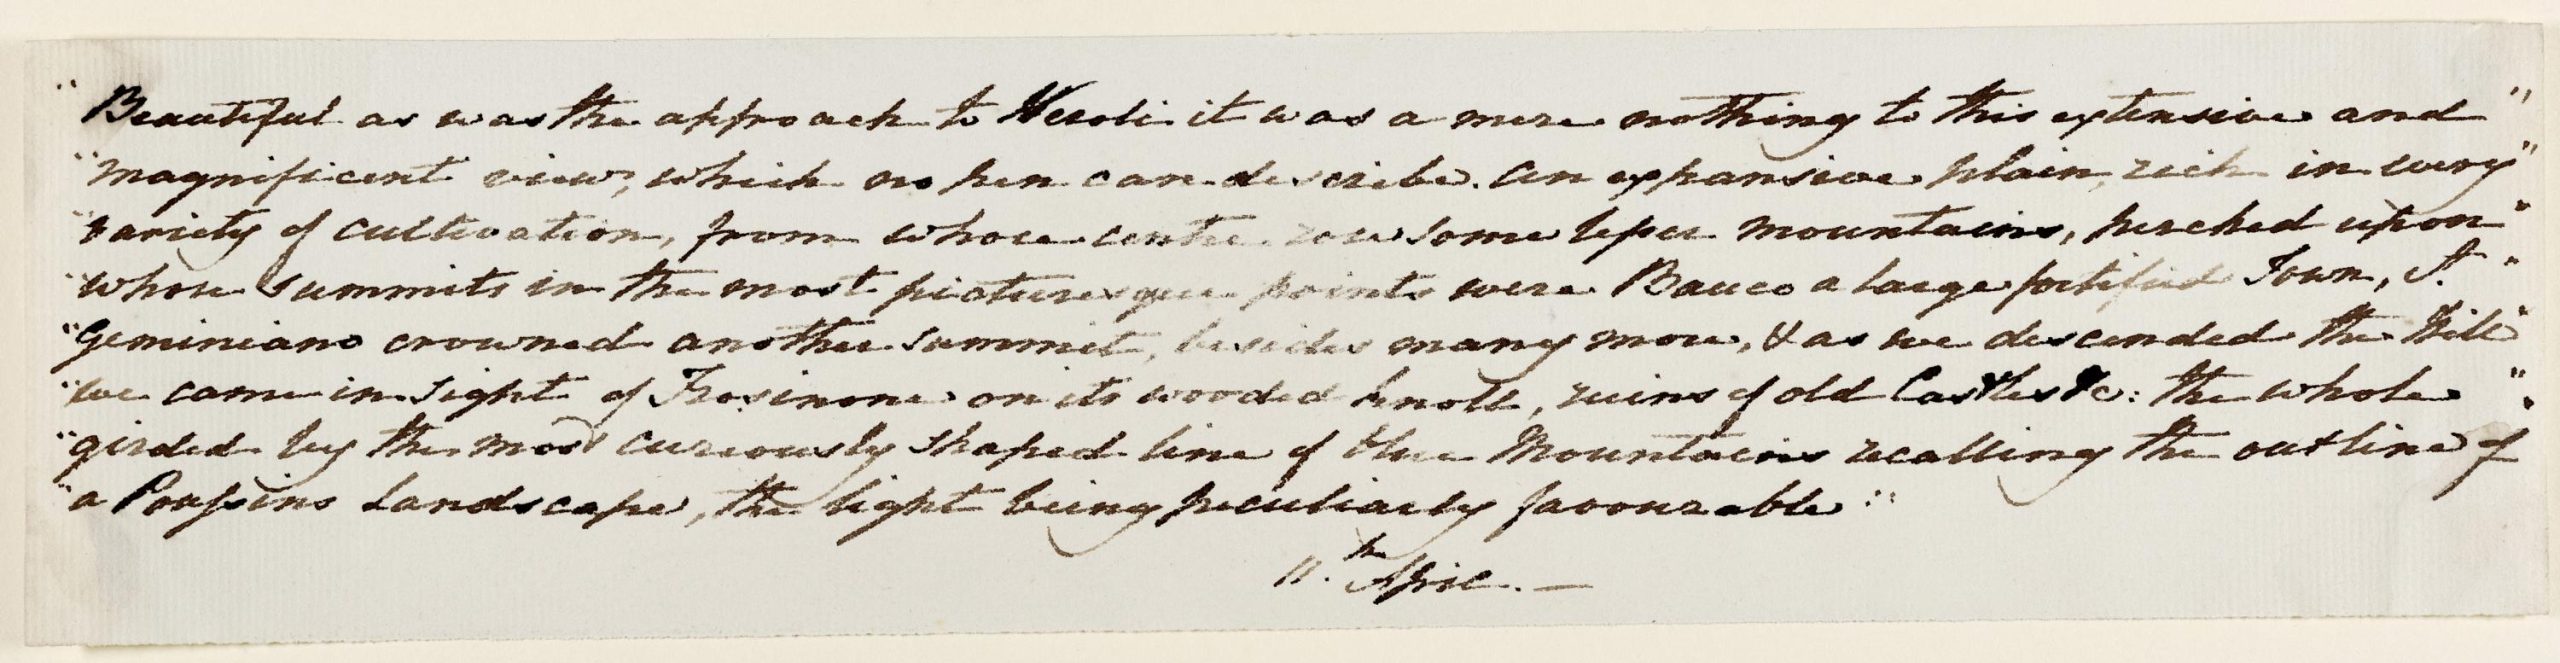 " Beautiful as was the approach to Veroli it was a mere nothing to this extensive and "
" magnificent view, which no pen can describe. An expansive plain, rich in every "
" variety of cultivation, from whose centre rose some lesser mountains, perched upon "
" whose summits in the most picturesque points were Bauco a large fortified Town, St. "
" Geminiano crowned another summit, besides many more, & as we descended the Hill "
" we came in sight of Frosinone on its wooded knoll, ruins of old Castles &c: the whole "
" girded by the most curiously shaped line of blue Mountains recalling the outline of "
" a Poussins Landscape, the light being peculiarly favourable."
11.th April. —